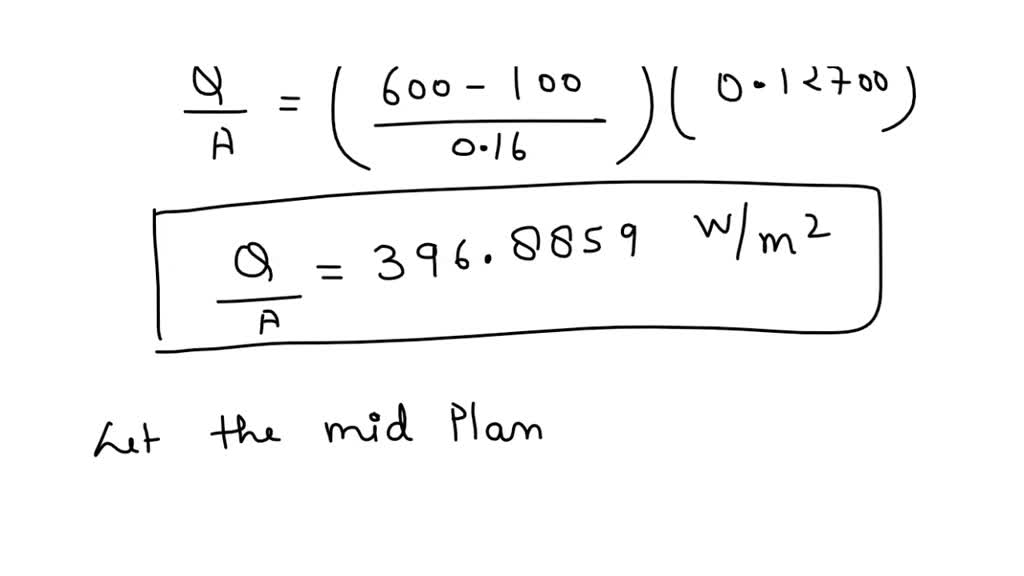 Q/A = (600 - 100 / 0.16)(0.12700)
Q/A = 396.8859 W/m²
Let the mid Plan